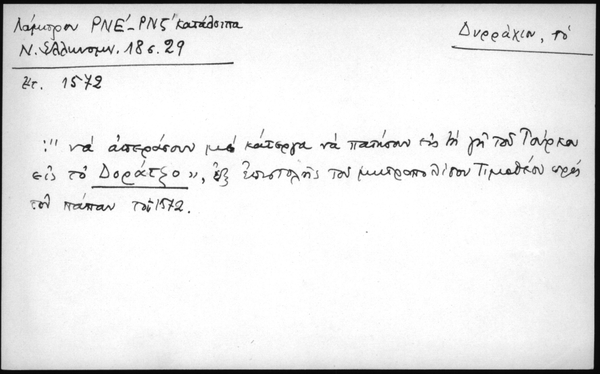 Λάμπρου ΡΝΕ΄-ΡΝϚ΄ κατάλοιπα
Ν. Ἑλληνομν. 18 σ. 29
Δυρράχιν, τό
ἔτ. 1572
:" νά ἀπεράσουν μέ κάτεργα νά πατήσουν εἰς τή γῆ τοῦ Τούρκου
εἰς τό Δοράτζο», ἐξ ἐπιστολῆς τοῦ μητροπολίτου Τιμοθέου πρός
τόν πάπαν τοῦ 1572.